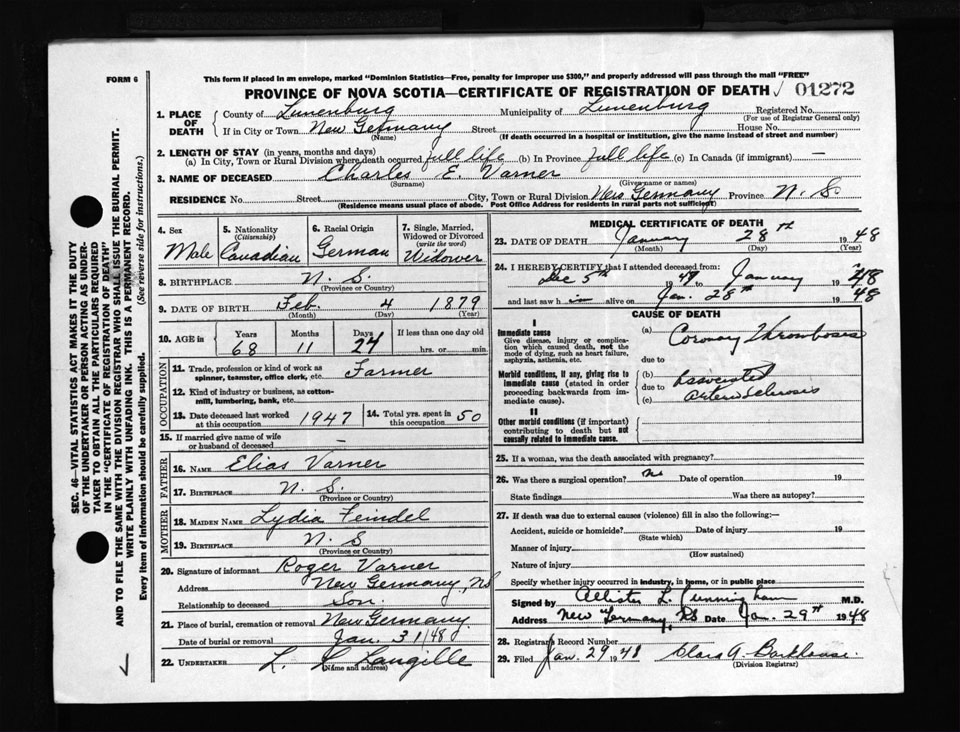 FORM 6
This form if placed in an envelope, marked "Dominion Statistics—Free, penalty for improper use $300," and properly addressed will pass through the mail "FREE"
PROVINCE OF NOVA SCOTIA—CERTIFICATE OF REGISTRATION OF DEATH √ 01272
1. PLACE OF DEATH { County of Lunenburg Municipality of Lunenburg Registered No.
(For use of Registrar General only)
If in City or Town New Germany Street House No.
(Name) (If death occurred in a hospital or institution, give the name instead of street and number)
2. LENGTH OF STAY (in years, months and days)
(a) In City, Town or Rural Division where death occurred full life (b) In Province full life (c) In Canada (if immigrant) —
3. NAME OF DECEASED Charles E. Varner
(Surname) (Given name or names)
RESIDENCE No. Street City, Town or Rural Division New Germany Province N. S.
(Residence means usual place of abode. Post Office Address for residents in rural parts not sufficient)
4. Sex Male
5. Nationality (Citizenship) Canadian
6. Racial Origin German
7. Single, Married, Widowed or Divorced (write the word) Widower
8. BIRTHPLACE N. S.
(Province or Country)
9. DATE OF BIRTH Feb. 4 1879
(Month) (Day) (Year)
10. AGE in { Years 68 Months 11 Days 24 If less than one day old hrs. or min.
OCCUPATION
11. Trade, profession or kind of work as spinner, teamster, office clerk, etc. Farmer
12. Kind of industry or business, as cotton-mill, lumbering, bank, etc.
13. Date deceased last worked at this occupation 1947
14. Total yrs. spent in this occupation 50
15. If married give name of wife or husband of deceased —
FATHER
16. NAME Elias Varner
17. BIRTHPLACE N. S.
(Province or Country)
MOTHER
18. MAIDEN NAME Lydia Feindel
19. BIRTHPLACE N. S
(Province or Country)
20. Signature of informant Roger Varner
Address New Germany, NS
Relationship to deceased Son.
21. Place of burial, cremation or removal New Germany.
Date of burial or removal Jan. 31/48
22. UNDERTAKER L. L Langille
(Name and address)
MEDICAL CERTIFICATE OF DEATH
23. DATE OF DEATH January 28th 1948
(Month) (Day) (Year)
24. I HEREBY CERTIFY that I attended deceased from:
Dec 5th 1947 to January 1948
and last saw h im alive on Jan. 28th 1948
CAUSE OF DEATH
I
Immediate cause
Give disease, injury or complication which caused death, not the mode of dying, such as heart failure, asphyxia, asthenia, etc.
(a) Coronary Thrombosis
due to
Morbid conditions, if any, giving rise to immediate cause (stated in order proceeding backwards from immediate cause).
(b) Associated
due to
(c) arterio Sclerosis
II
Other morbid conditions (if important) contributing to death but not causally related to immediate cause.
25. If a woman, was the death associated with pregnancy?
26. Was there a surgical operation? no Date of operation 19
State findings Was there an autopsy?
27. If death was due to external causes (violence) fill in also the following:—
Accident, suicide or homicide? Date of injury 19
(State which)
Manner of injury
(How sustained)
Nature of injury
Specify whether injury occurred in industry, in home, or in public place
Signed by Allister L. Cunningham M.D.
Address New Germany, NS Date Jan. 29th 1948
28. Registrars Record Number
29. Filed Jan. 29 1948 Clara A. Barkhouse.
(Division Registrar)
SEC. 46—VITAL STATISTICS ACT MAKES IT THE DUTY
OF THE UNDERTAKER OR PERSON ACTING AS UNDER-
TAKER TO OBTAIN ALL THE PARTICULARS REQUIRED
IN THE "CERTIFICATE OF REGISTRATION OF DEATH"
AND TO FILE THE SAME WITH THE DIVISION REGISTRAR WHO SHALL ISSUE THE BURIAL PERMIT.
WRITE PLAINLY WITH UNFADING INK. THIS IS A PERMANENT RECORD.
Every item of information should be carefully supplied. (See reverse side for instructions.)